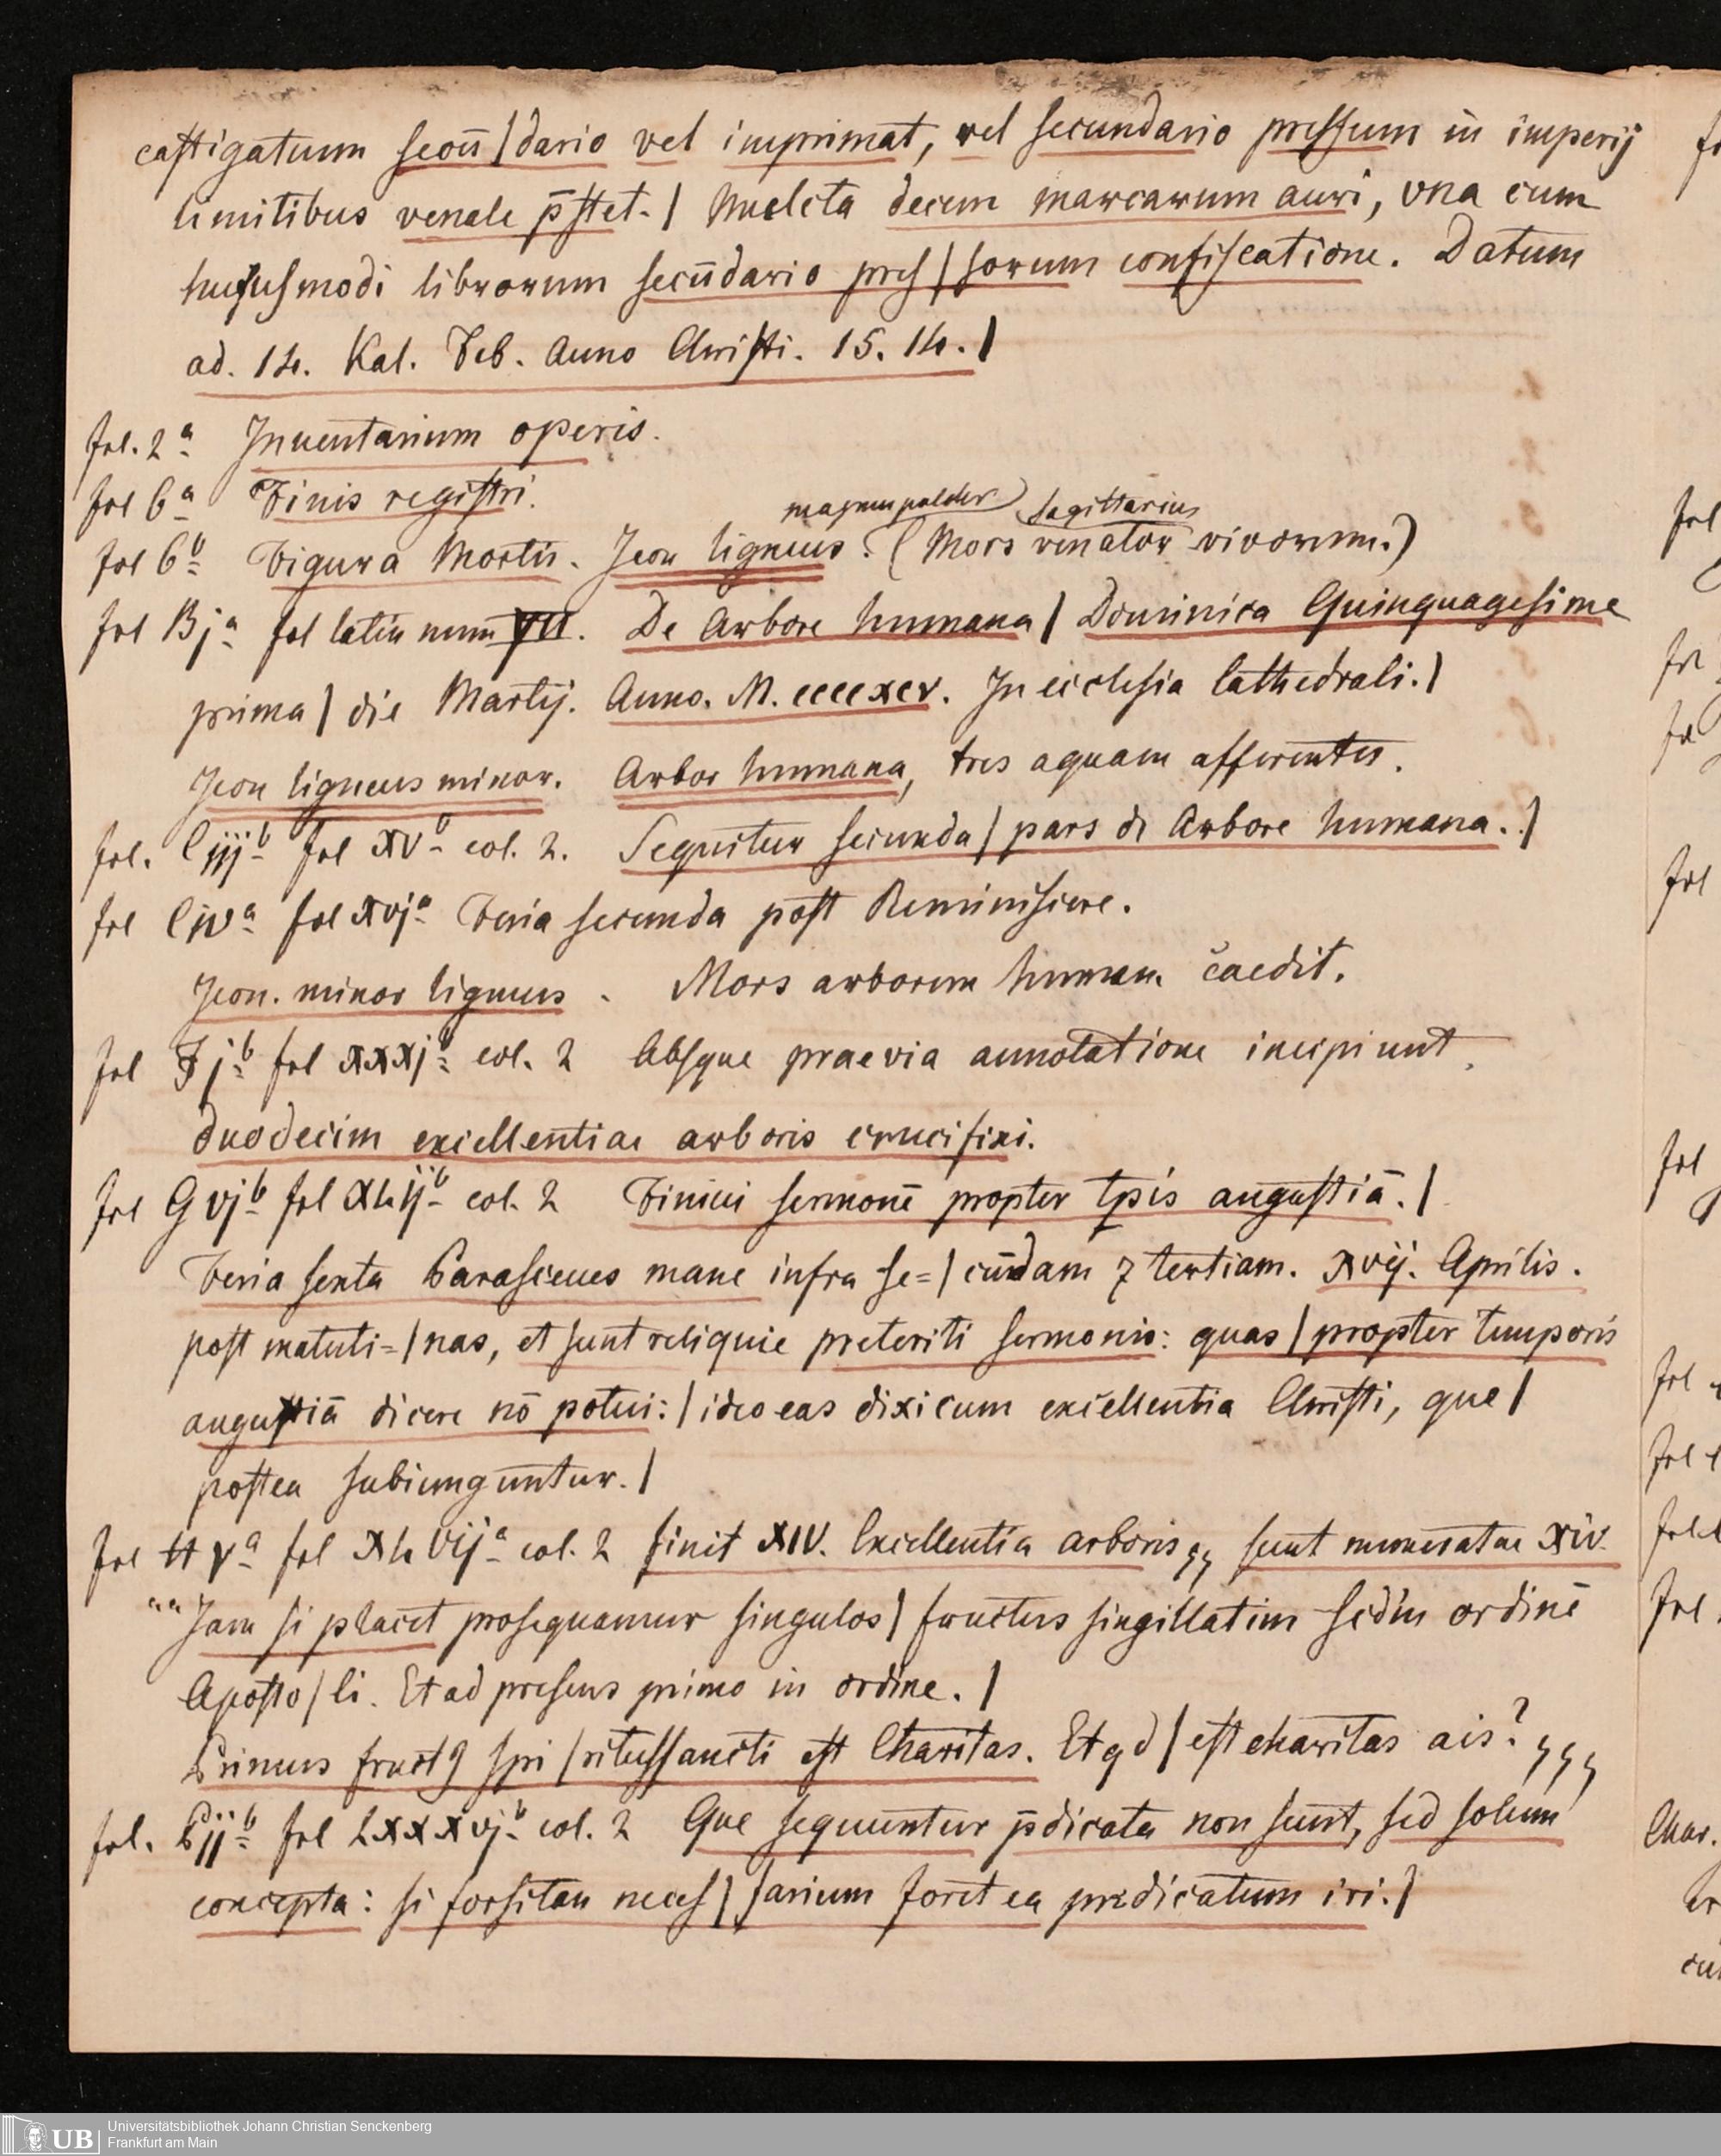 castigatum secū|dario vel imprimat, vel secundario pressum in imperij
limitibus venale p̄stet. | Mulcta decem marcarum auri, vna cum
huiusmodi librorum secūdario pres|sorum confiscatione. Datum
ad. 14. Kal. Feb. Anno Christi. 15. 14. |
fol. 2ᵃ Inuentarium operis.
fol 6ᵃ Finis registri.
magnus pulcher sagittarius
fol 6ᵇ Figura Mortis. Icon ligneus. (Mors venator vivorum.)
fol Bjᵃ fol latin num VII. De Arbore humana | Dominica Quinquagesime
prima | die Martij. Anno. M. ccccxcv. In ecclesia Cathedrali. |
Icon ligneus minor. Arbor humana, tres aquam afferentes.
fol. Ciijᵇ fol XVᵇ col. 2. Sequitur secunda | pars de Arbore humana. |
fol Civᵃ fol xvjᵃ Feria secunda post Reminiscere.
Icon. minor ligneus. Mors arborem human. caedit.
fol Fjᵇ fol xxxjᵇ col. 2 Absque praevia annotatione incipiunt
duodecim excellentiae arboris crucifixi.
fol Gvjᵇ fol Xlijᵇ col. 2 Finiui sermonē propter tp̄is angustiā. |
Feria sexta Parasceues mane infra se=|cūdam ⁊ tertiam. xvij. Aprilis.
post matuti=|nas, et sunt reliquie preteriti sermonis: quas | propter temporis
angustiā dicere nō potui: | ideo eas dixi cum excellentia Christi, que |
postea subiunguntur. |
fol H vᵃ fol Xlvijᵃ col. 2 finit XIV. Excellentia arboris,, sunt numeratae xiv.
"" Jam si placet prosequamur singulos | fructus singillatim scdm ordinē
Aposto|li. Et ad presens primo in ordine. |
Primus fruct9 spi|ritussancti est Charitas. Et qd | est charitas ais? ,,,
fol. Pijᵇ fol Lxxxvjᵇ col. 2 Que sequuntur p̄dicata non sunt, sed solum
concepta: si forsitan neces|sarium foret ea predicatum iri. |
Universitätsbibliothek Johann Christian Senckenberg
Frankfurt am Main
UB